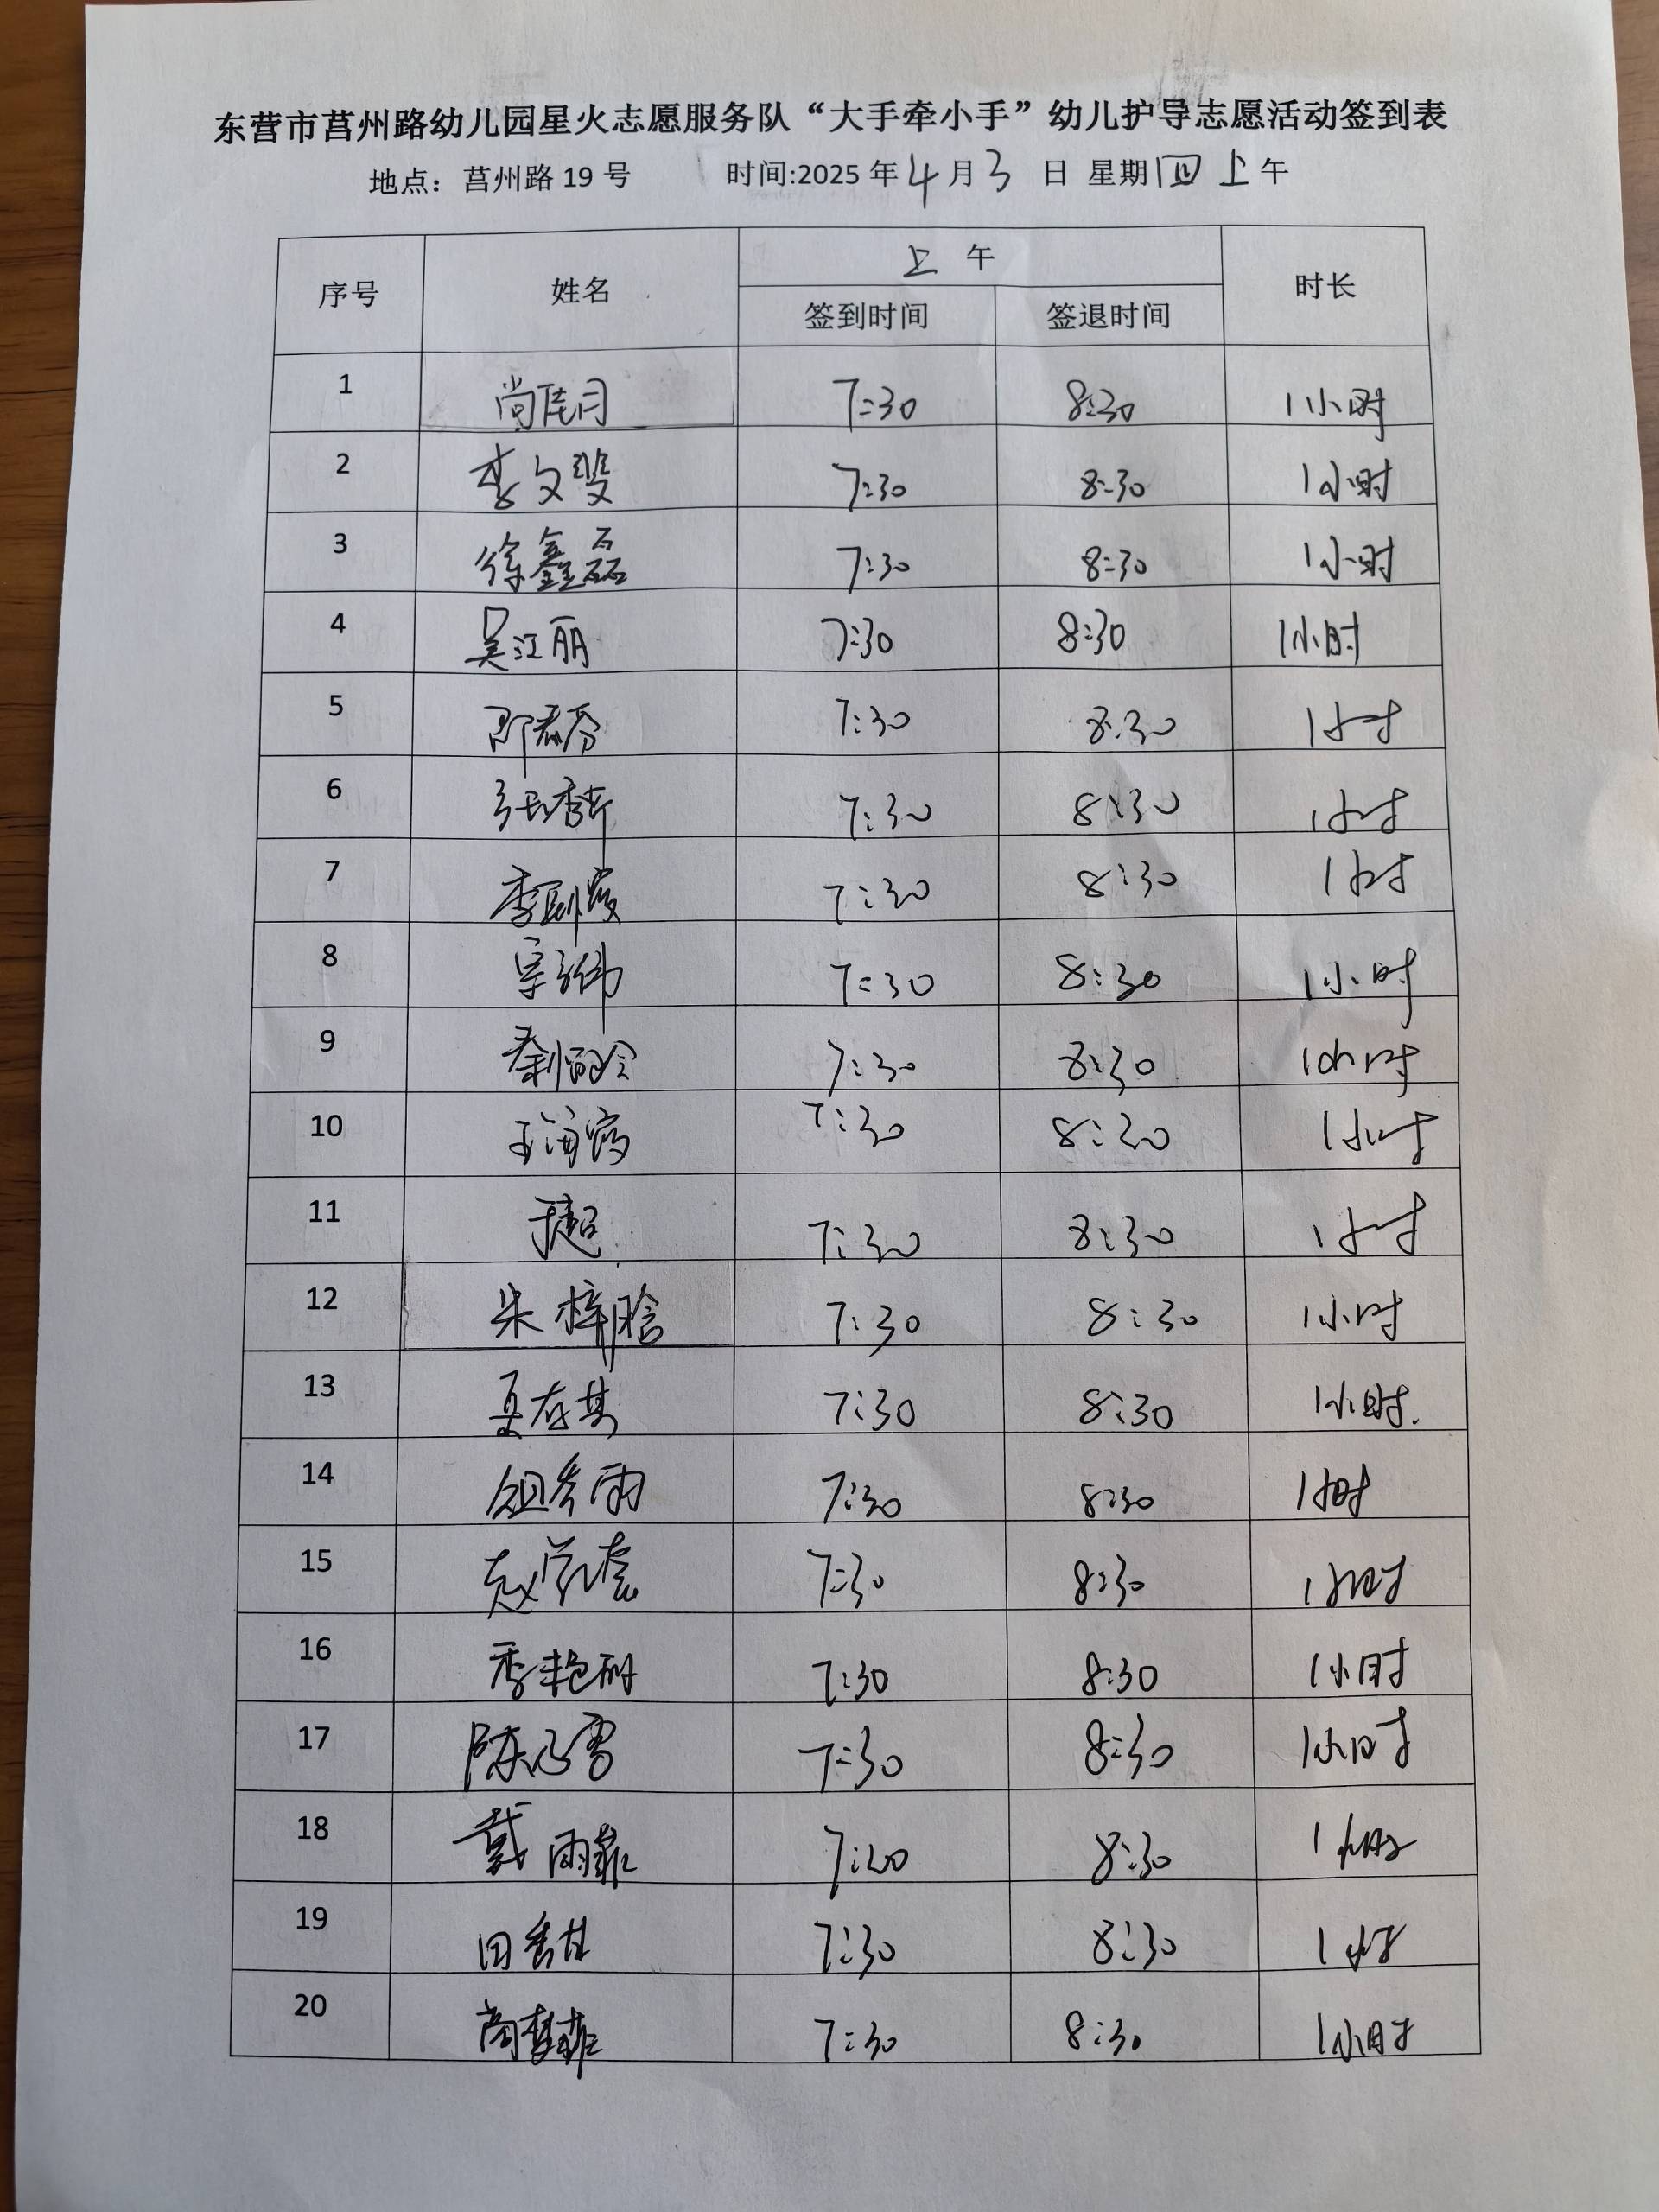 东营市莒州路幼儿园星火志愿服务队“大手牵小手”幼儿护导志愿活动签到表
地点：莒州路 19 号 时间:2025 年 4 月 3 日 星期 四 上 午
序号 姓名 上 午 时长
签到时间 签退时间
1 尚佳月 7:30 8:30 1小时
2 李文斐 7:30 8:30 1小时
3 徐鑫磊 7:30 8:30 1小时
4 吴江丽 7:30 8:30 1小时
5 7:30 8:30 1小时
6 7:30 8:30 1小时
7 7:30 8:30 1小时
8 7:30 8:30 1小时
9 7:30 8:30 1小时
10 王海霞 7:30 8:30 1小时
11 于超 7:30 8:30 1小时
12 朱梓晗 7:30 8:30 1小时
13 夏存其 7:30 8:30 1小时.
14 7:30 8:30 1小时
15 7:30 8:30 1小时
16 7:30 8:30 1小时
17 7:30 8:30 1小时
18 戴雨菲 7:20 8:30 1小时
19 田秀甘 7:30 8:30 1小时
20 商梦菲 7:30 8:30 1小时